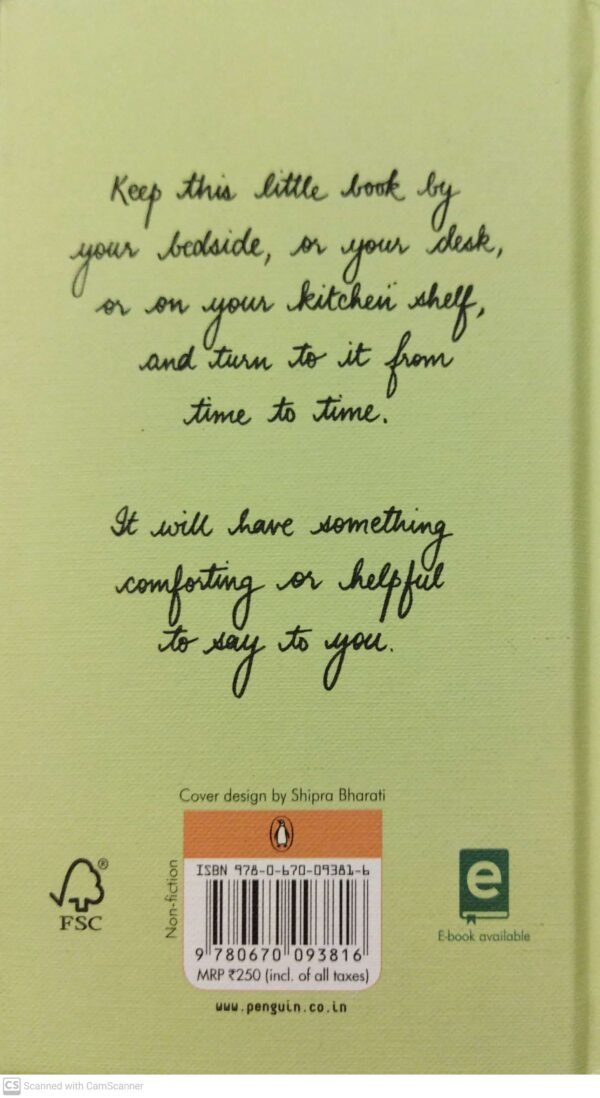 Keep this little book by
your bedside, or your desk,
or on your kitchen shelf,
and turn to it from
time to time.
It will have something
comforting or helpful
to say to you.
Cover design by Shipra Bharati
ISBN 978-0-670-09381-6
Non-fiction
9 780670 093816
MRP ₹250 (incl. of all taxes)
www.penguin.co.in
®
FSC
e
E-book available
CS Scanned with CamScanner